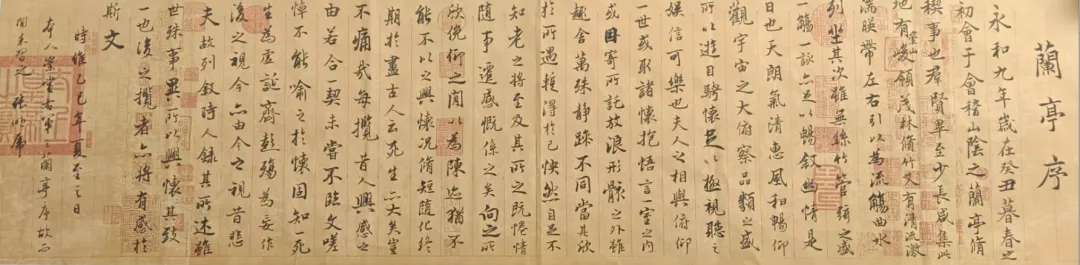 蘭亭序
永和九年歲在癸丑暮春之
初會于會稽山陰之蘭亭脩
禊事也羣賢畢至少長咸集此
地有崇山峻領茂林脩竹又有清流激
湍暎帶左右引以為流觴曲水
列坐其次雖無絲竹管絃之盛
一觴一詠亦足以暢敘幽情是
日也天朗氣清惠風和暢仰
觀宇宙之大俯察品類之盛
所以遊目騁懷足以極視聽之
娛信可樂也夫人之相與俯仰
一世或取諸懷抱悟言一室之內
或因寄所託放浪形骸之外雖
趣舍萬殊靜躁不同當其欣
於所遇蹔得於己怏然自足不
知老之將至及其所之既惓情
隨事遷感慨係之矣向之所
欣俛仰之閒以為陳迹猶不
能不以之興懷況脩短隨化終
期於盡古人云死生亦大矣豈
不痛哉每攬昔人興感之
由若合一契未嘗不臨文嗟
悼不能喻之於懷固知一死
生為虛誕齊彭殤為妄作
後之視今亦由今之視昔悲
夫故列敘時人錄其所述雖
世殊事異所以興懷其致
一也後之攬者亦將有感於
斯文
時維乙巳年夏至之日
本人 右軍之蘭亭序故而